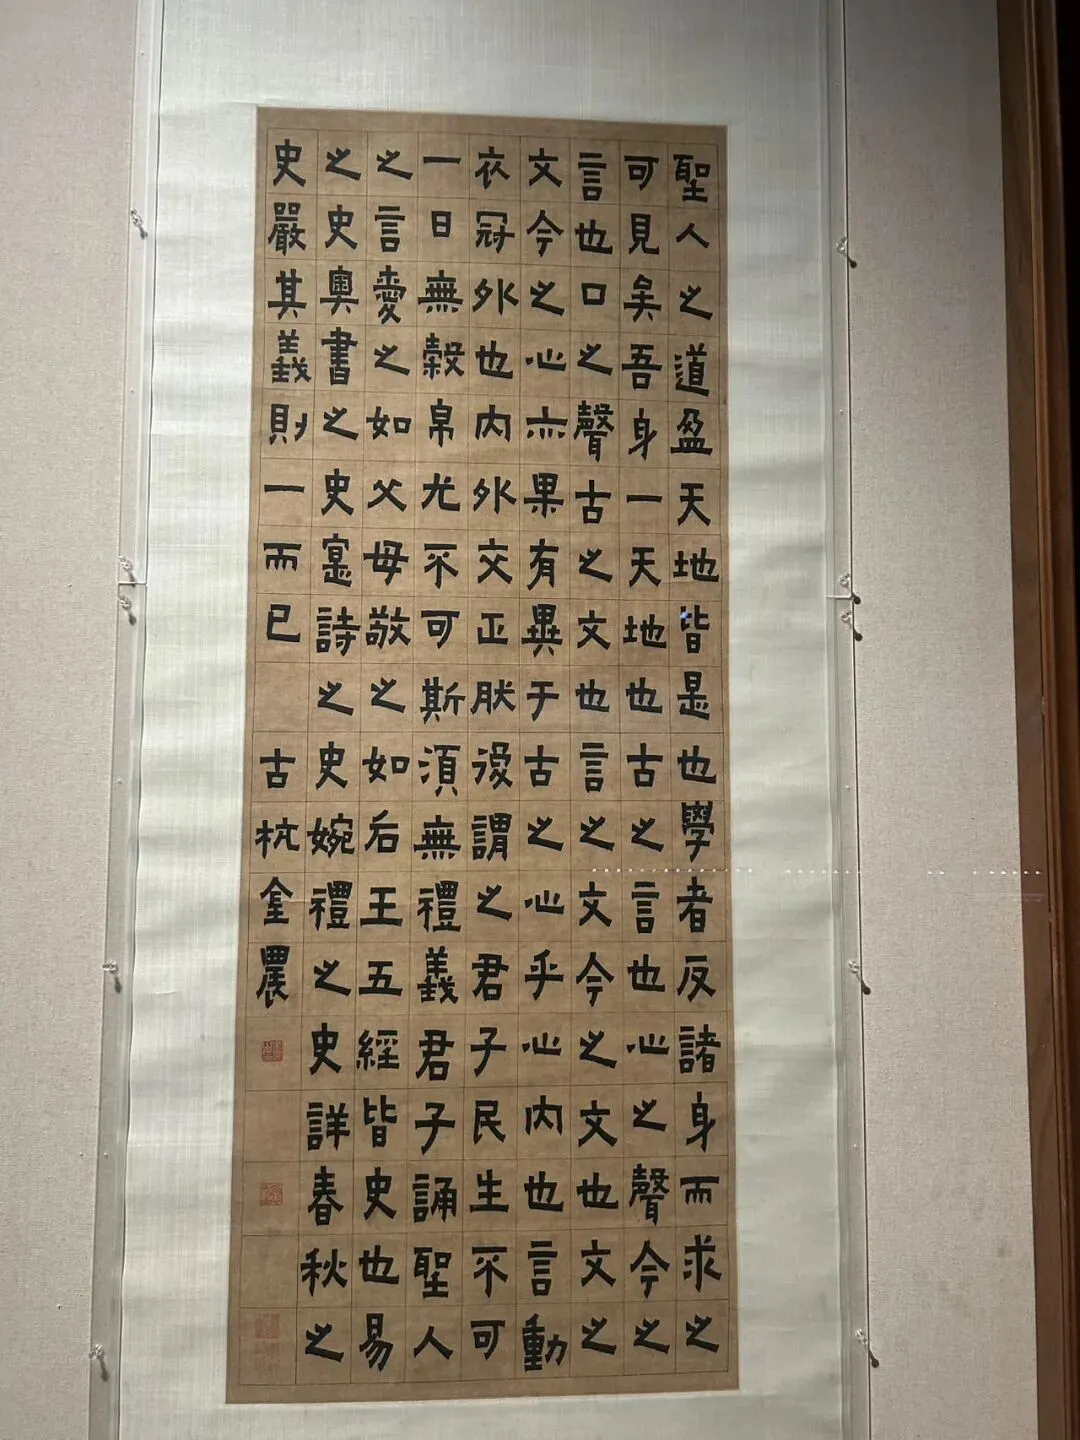 聖人之道盈天地皆是也學者反諸身而求之
可見矣吾身一天地也古之言也心之聲今之
言也口之聲古之文也言之文今之文也文之
文今之心亦果有異于古之心乎心内也言動
衣冠外也内外交正肰後謂之君子民生不可
一日無穀帛尤不可斯須無禮義君子誦聖人
之言愛之如父母敬之如后王五經皆史也易
之史奥書之史寔詩之史婉禮之史詳春秋之
史嚴其義則一而已 古杭金農